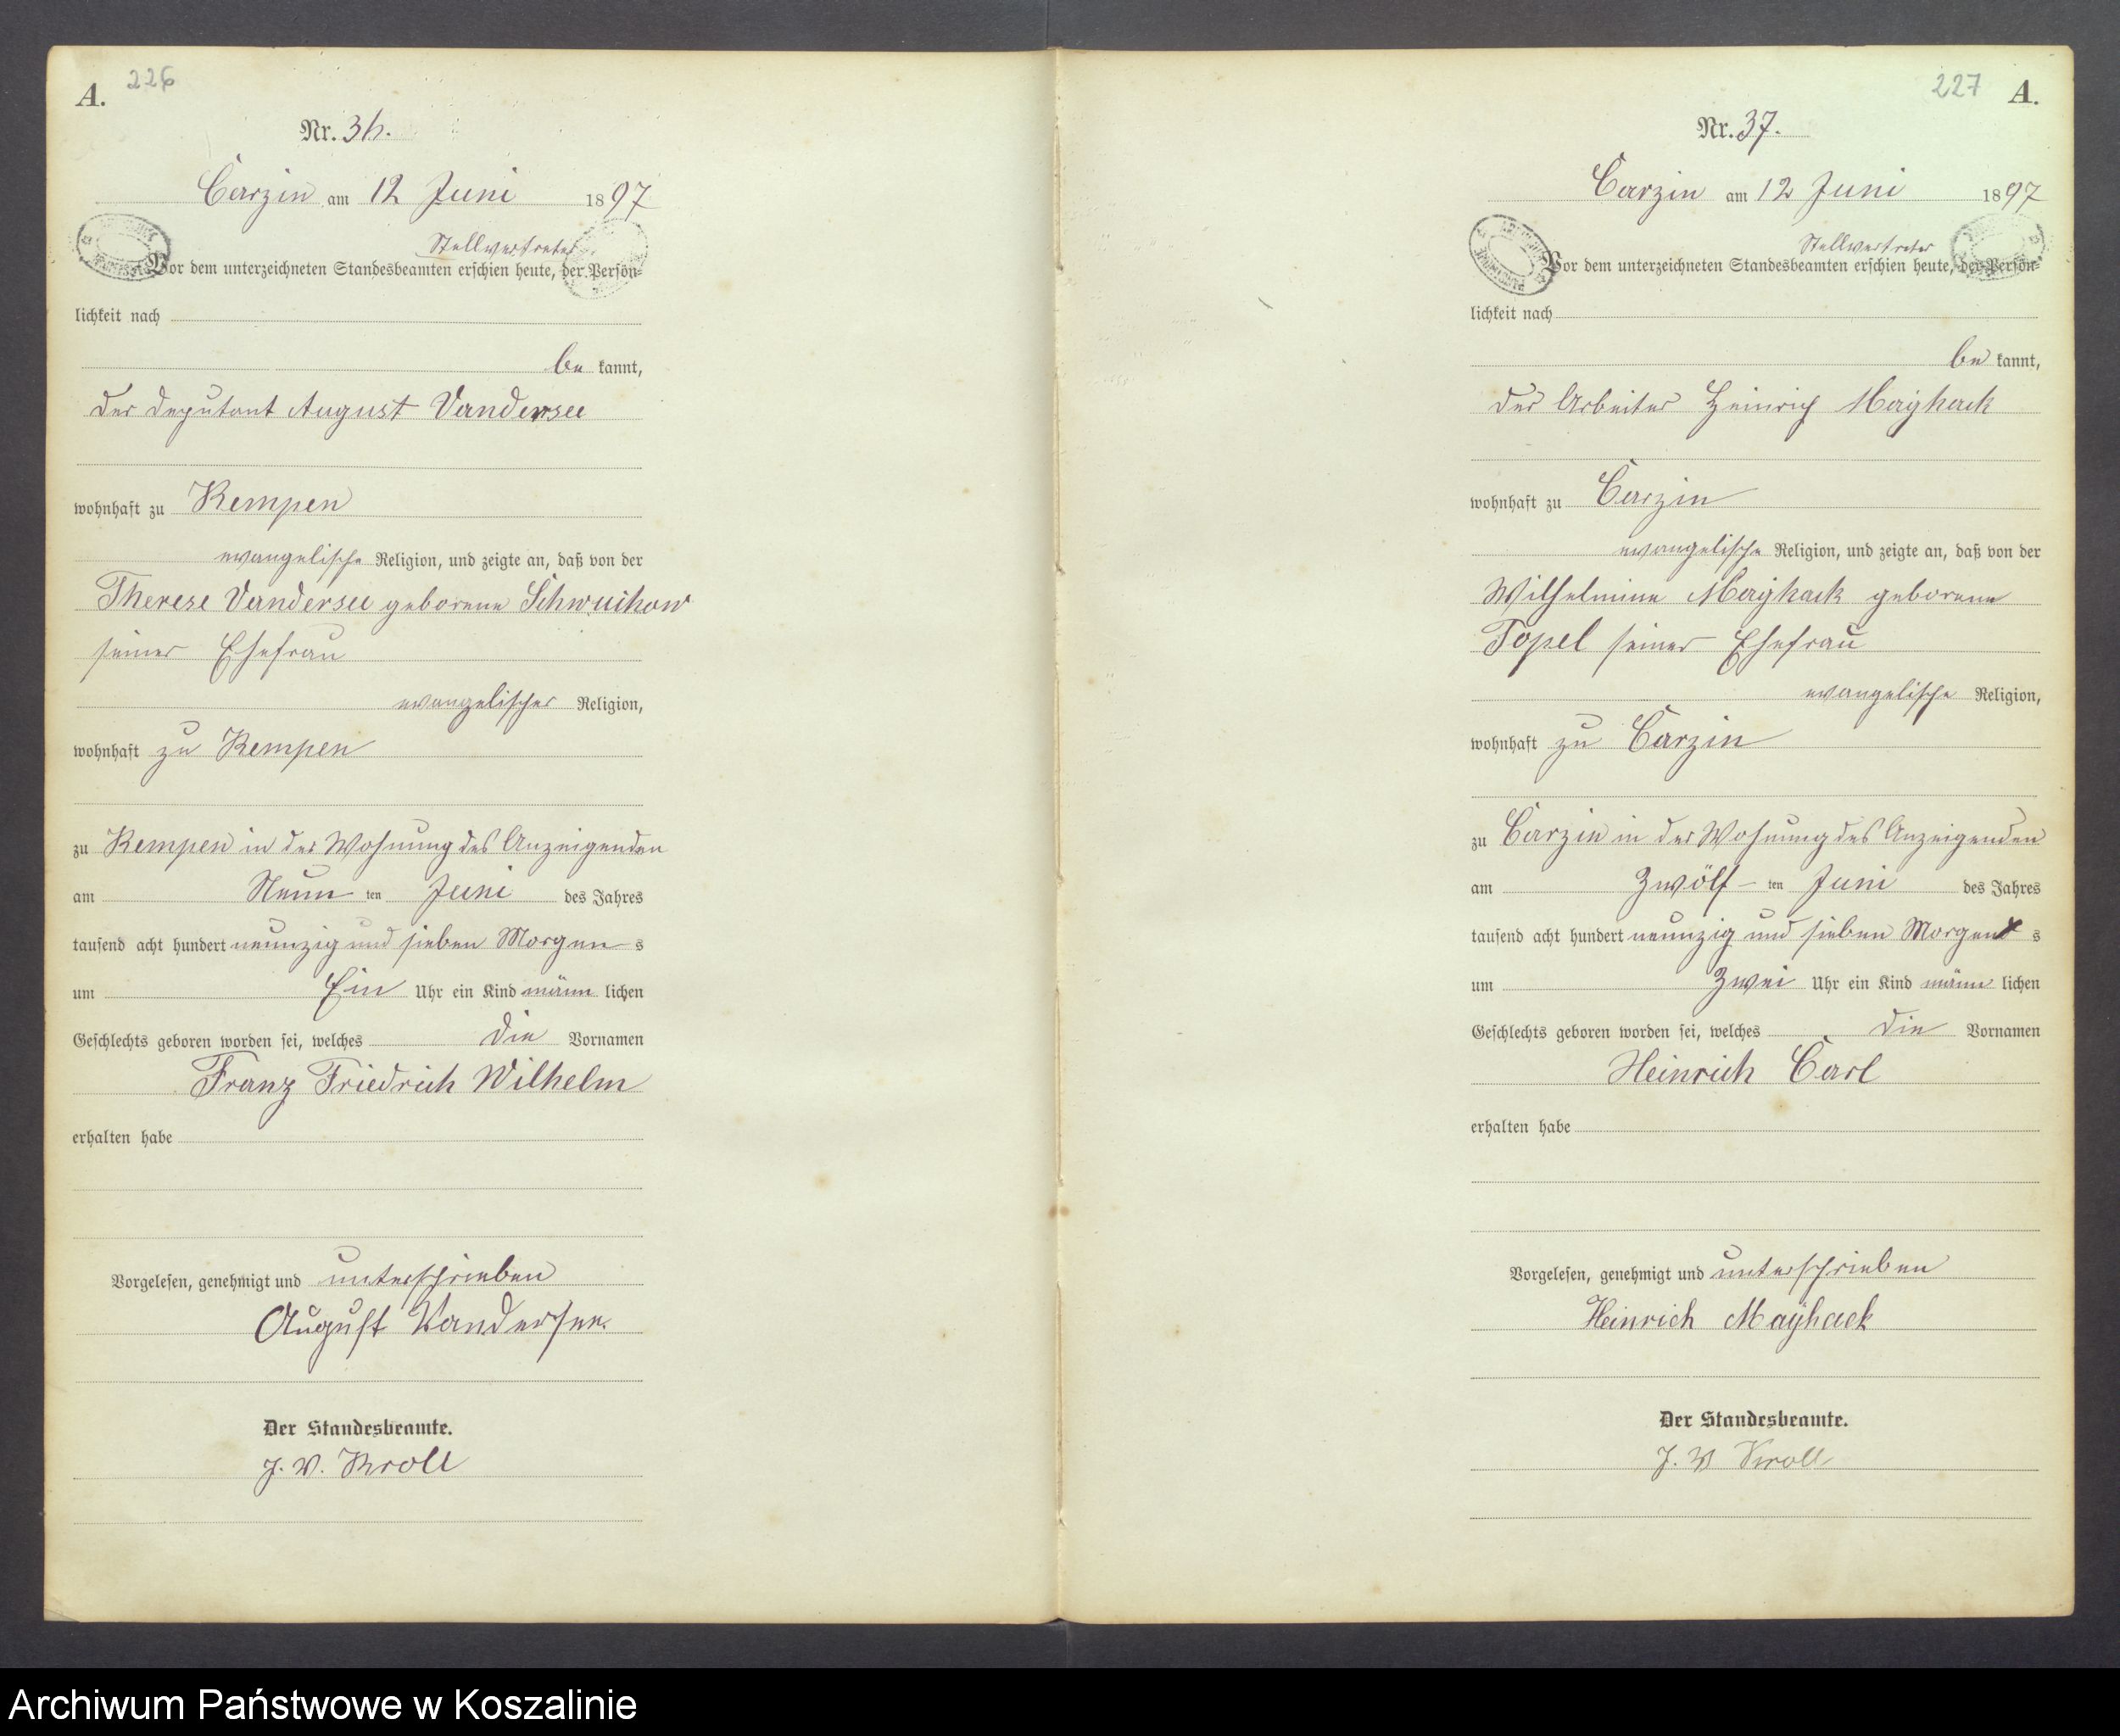 A. 226
Nr. 36.
Carzin am 12 Juni 1897
Stellvertreter
Vor dem unterzeichneten Standesbeamten erschien heute, der Persön-
lichkeit nach
be kannt,
der Deputant August Vandersee
wohnhaft zu Kempen
evangelische Religion, und zeigte an, daß von der
Therese Vandersee geborene Schwuchow
seiner Ehefrau
evangelischer Religion,
wohnhaft zu Kempen
zu Kempen in der Wohnung des Anzeigenden
am Neun ten Juni des Jahres
tausend acht hundert neunzig und sieben Morgen s
um Ein Uhr ein Kind männ lichen
Geschlechts geboren worden sei, welches die Vornamen
Franz Friedrich Wilhelm
erhalten habe
Vorgelesen, genehmigt und unterschrieben
August Vandersee.
Der Standesbeamte.
J. V. Kroll
227 A.
Nr. 37.
Carzin am 12 Juni 1897
Stellvertreter
Vor dem unterzeichneten Standesbeamten erschien heute, der Persön-
lichkeit nach
be kannt,
der Arbeiter Heinrich Mayhack
wohnhaft zu Carzin
evangelische Religion, und zeigte an, daß von der
Wilhelmine Mayhack geborene
Topel seiner Ehefrau
evangelische Religion,
wohnhaft zu Carzin
zu Carzin in der Wohnung des Anzeigenden
am Zwölf ten Juni des Jahres
tausend acht hundert neunzig und sieben Morgen s
um Zwei Uhr ein Kind männ lichen
Geschlechts geboren worden sei, welches die Vornamen
Heinrich Carl
erhalten habe
Vorgelesen, genehmigt und unterschrieben
Heinrich Mayhack
Der Standesbeamte.
J. V Kroll
Archiwum Państwowe w Koszalinie